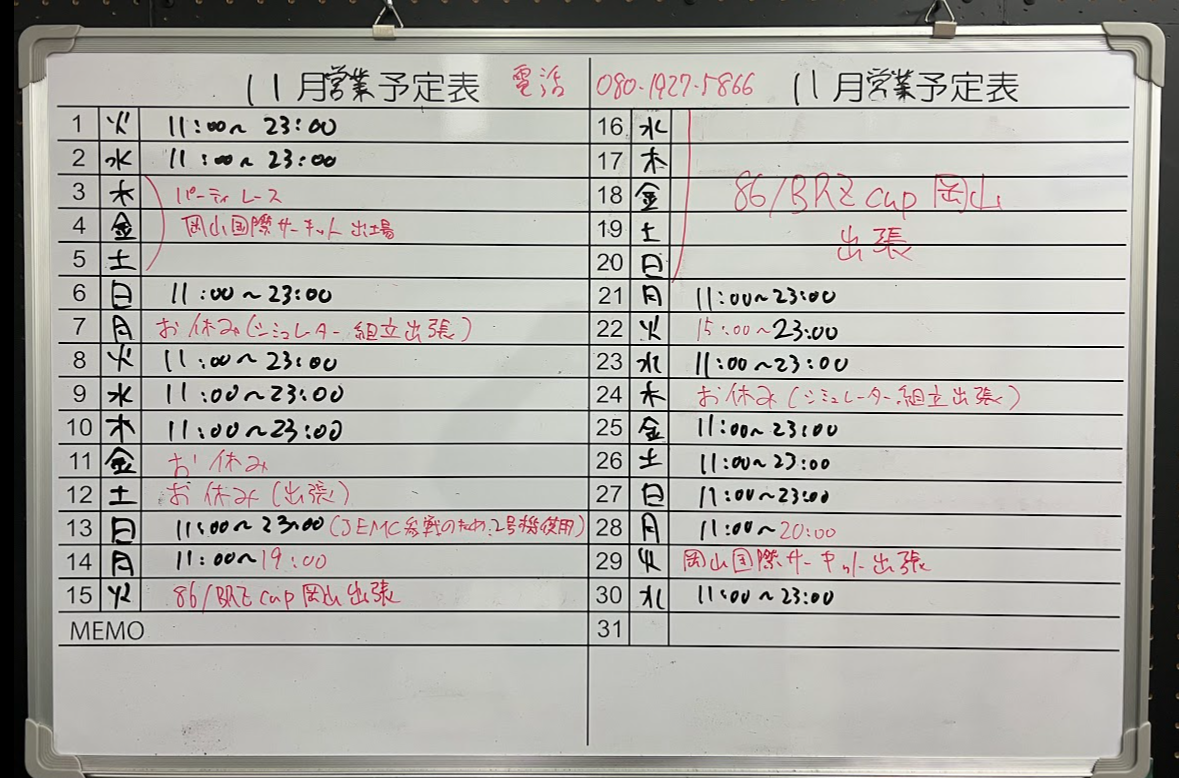 11月営業予定表 電話 080-1927-5866 11月営業予定表
1 火 11:00~23:00
2 水 11:00~23:00
3 木 パーティレース
4 金 岡山国際サーキット出場
5 土
6 日 11:00~23:00
7 月 お休み(シミュレーター組立出張)
8 火 11:00~23:00
9 水 11:00~23:00
10 木 11:00~23:00
11 金 お休み
12 土 お休み(出張)
13 日 11:00~23:00(JEMC参戦のため、2号機使用)
14 月 11:00~19:00
15 火 86/BRZ cup 岡山出張
MEMO
16 水
17 木
18 金 86/BRZ cup 岡山
19 土 出張
20 日
21 月 11:00~23:00
22 火 15:00~23:00
23 水 11:00~23:00
24 木 お休み(シミュレーター組立出張)
25 金 11:00~23:00
26 土 11:00~23:00
27 日 11:00~23:00
28 月 11:00~20:00
29 火 岡山国際サーキット出張
30 水 11:00~23:00
31